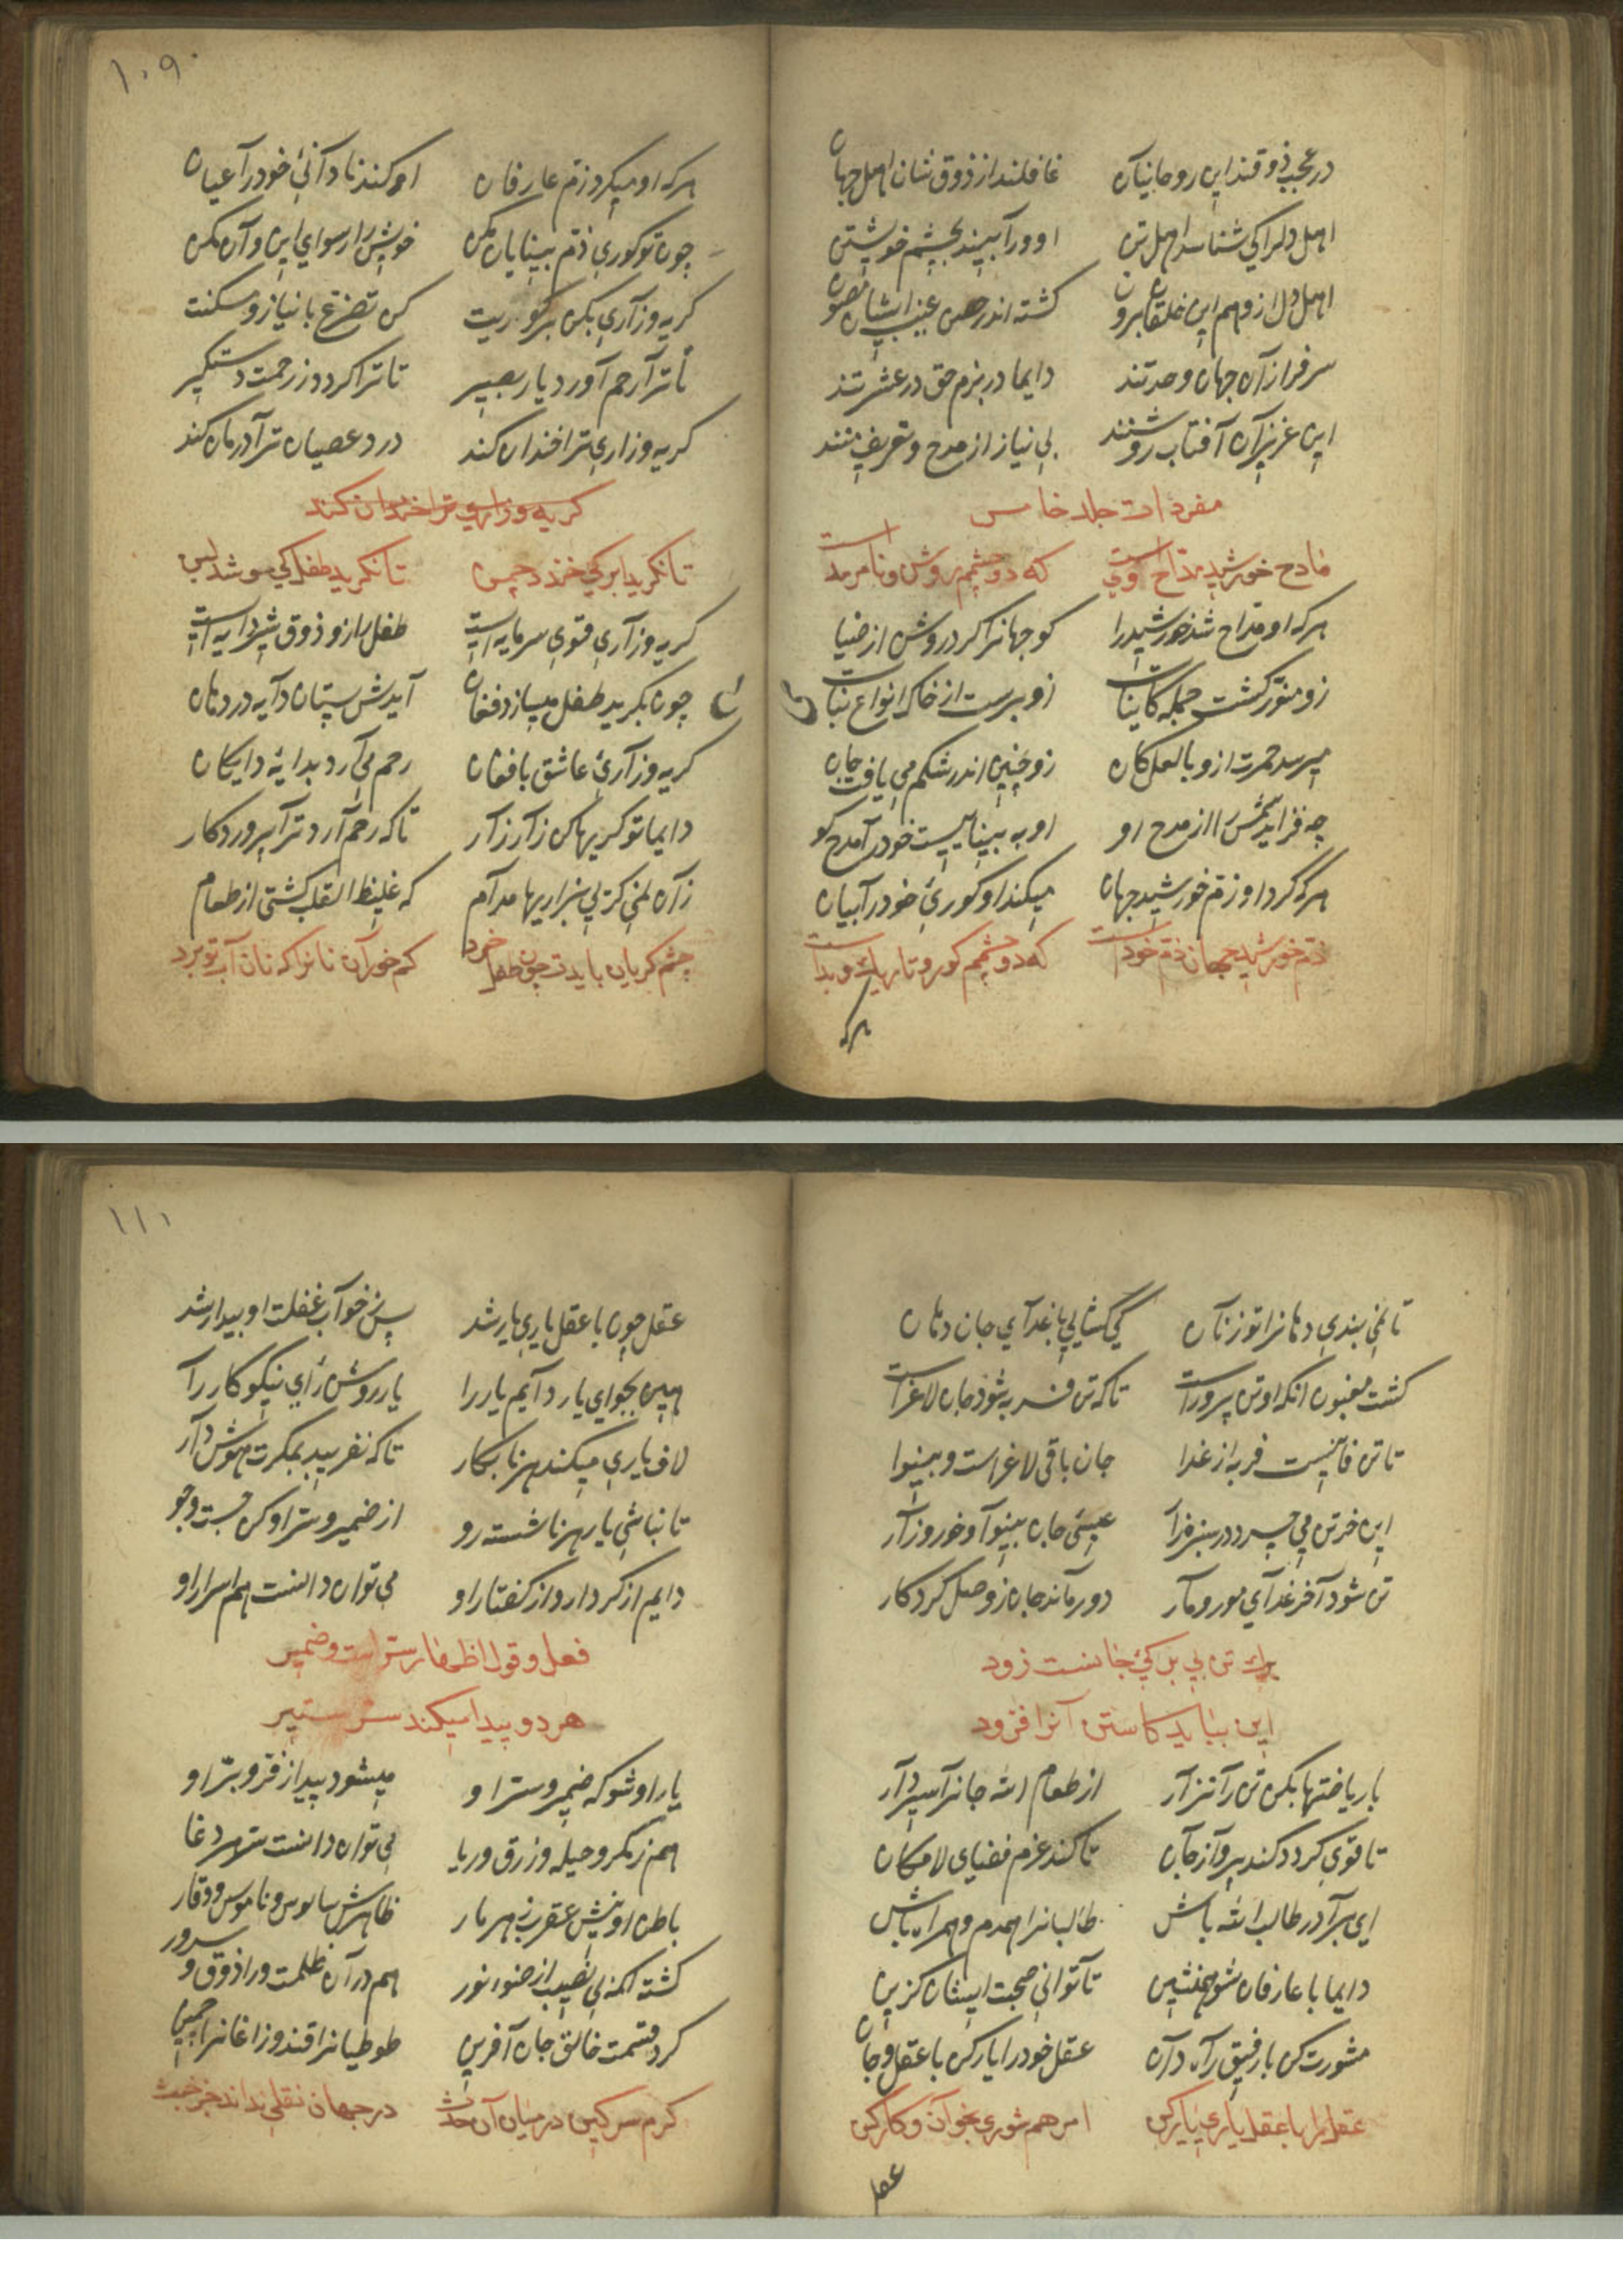 در عجب ذوقند این روحانیان غافلند از ذوق شان اهل جهان
اهل دلرا کی شناسد اهل تن او ورا بیند بچشم خویشتن
اهل دل از وهم این خلقان برون کشته اندر حصن غیب ایشان مصون
سرفرازان جهان وحدتند دایما در بزم حق در عشرتند
این عزیزان آفتاب روشنند بی نیاز از مدح و تعریف منند
مفردات جلد خامس
مادح خورشید مداح خود است که دو چشمم روشن و نامرمد است
هر که او مداح شد خورشید را کو جهانرا کرد روشن از ضیا
زو منور کشت جمله کاینات زو برست از خاک انواع نبات
میرسد حمرت ازو با لعل کان زو جنین اندر شکم می یافت جان
چه فزاید شمس را از مدح او او به بیناییست خود را مدح کو
هر که کرد او ذم خورشید جهان میکند او کوری خود را بیان
ذم خورشید جهان ذم خود است که دو چشمم کور و تاریک و بد است
هر که
۱۰۹
هر که او میکرد ذم عارفان او کند نادانی خود را عیان
چون تو کوری ذم بینایان مکن خویش را رسوای این و آن مکن
کریه و زاری بکن بر کوریت کن تضرع با نیاز و مسکنت
تا ترا رحم آورد یار بصیر تا ترا کردد ز رحمت دستکیر
کریه و زاری ترا خندان کند درد عصیان ترا درمان کند
کریه و زاری ترا خندان کند
تا نکرید ابر کی خندد چمن تا نکرید طفل کی جوشد لبن
کریه و زاری قوی سرمایه است طفل را زو ذوق شیر دایه است
چون بکرید طفل میسازد فغان آیدش پستان دایه در دهان
کریه و زاری عاشق با فغان رحم می آرد بدایه دایکان
دایما تو کریها کن زار زار تا که رحم آرد ترا پروردکار
زان نمی کریی بزاریها مدام که غلیظ القلب کشتی از طعام
چشم کریان بایدت چون طفل خرد کم خور آن نانرا که نان آب تو برد
تا نمی بندی دهانرا تو ز نان کی کشایی با غدای جان دهان
کشت مغبون انکه او تن پرورست تا که تن فربه شود جان لاغرست
تا تن فانیست فربه از غدا جان باقی لاغر است و بینوا
این خر تن می چرد در سبزه زار عیسی جان بینوا و خور و زار
تن شود آخر غدای مور و مار دور ماند جان ز وصل کردکار
برك تن بی برکی جانست زود
این بباید کاستن آنرا فزود
با ریاضتها بکن تن را نزار از طعام الله جانرا سپردآر
تا قوی کردد کند پرواز جان تا کند عزم فضای لامکان
ای برادر طالب الله باش طالبانرا همدم و همراه باش
دایما با عارفان شو همنشین تا توانی صحبت ایشان کزین
مشورت کن با رفیق راه دان عقل خود را یار کن با عقل و جان
عقل را با عقل یاری یار کن امرهم شوری بخوان و کار کن
عقل
۱۱۰
عقل چون با عقل یاری یار شد پس ز خواب غفلت او بیدار شد
همین بجوای یار دایم یار را یار روشن رای نیکو کار را
لاف یاری میکند هر نابکار تا که نفریبد بمکرت هوش دار
تا نباشی یار هر ناشسته رو از ضمیر و سر او کن جست و جو
دایم از کردار و از کفتار او می توان دانست هم اسرار او
فعل و قول اظهار سر است و ضمیر
هر دو پیدا میکند سر ستیر
یار او شو که ضمیر و سر او میشود پیدا ز فر و بر او
هم ز مکر و حیله و زرق و ریا می توان دانست سر مرد غا
باطن او نیش عقرب زهر مار ظاهرش سالوس و ناموس و وقار
کشته اکمه بی نصیب از ضوء نور هم در آن ظلمت ورا ذوق و سرور
کرد قسمت خالق جان آفرین طوطیانرا قند و زاغانرا چمین
کرم سرکین در میان آن حدث در جهان نقلی نداند جز خبث